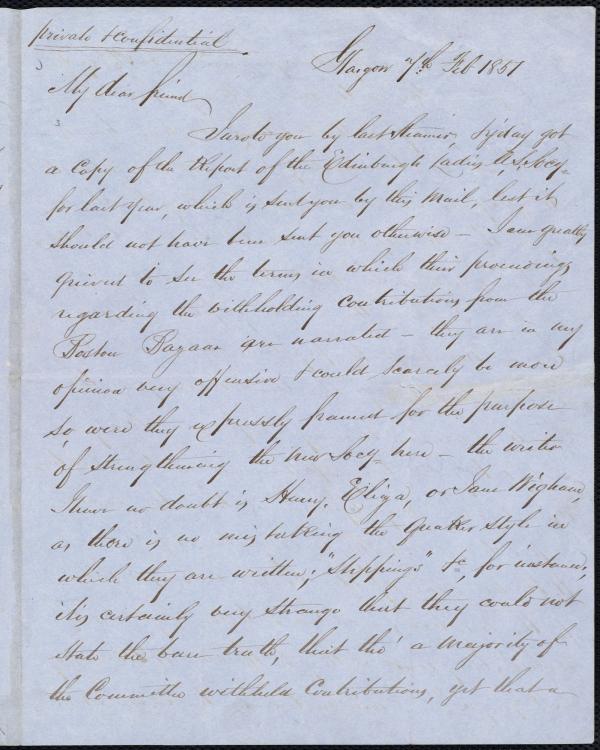 private & confidential
Glasgow 7th Feb 1851
My dear friend
I wrote you by last steamer, & today got
a copy of the Report of the Edinburgh Ladies A.S. Socy.
for last year, which is sent you by this Mail, lest it
should not have been sent you otherwise — I am greatly
grieved to see the terms in which their proceedings
regarding the withholding contributions from the
Boston Bazaar are narrated — they are in my
opinion very offensive & could scarcely be more
so, were they expressly framed for the purpose
of strengthening the new Socy. here — the writer
I have no doubt is Henry, Eliza, or Jane Wigham,
as there is no mistaking the Quaker style in
which they are written; "Stoppings" &c, for instance,
it is certainly very strange that they could not
state the bare truth, that tho' a majority of
the Committee withheld Contributions, yet that a